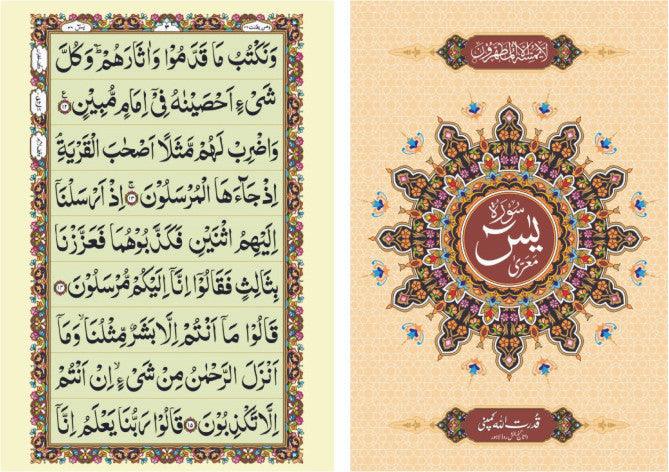 وَنَكْتُبُ مَا قَدَّمُوْا وَاٰثَارَهُمْ ؕ وَكُلَّ
شَیْءٍ اَحْصَيْنٰهُ فِیْۤ اِمَامٍ مُّبِيْنٍ ۝۱۲
وَاضْرِبْ لَهُمْ مَّثَلًا اَصْحٰبَ الْقَرْيَةِ ۘ
اِذْ جَآءَهَا الْمُرْسَلُوْنَ ۝۱۳ اِذْ اَرْسَلْنَاۤ
اِلَيْهِمُ اثْنَيْنِ فَكَذَّبُوْهُمَا فَعَزَّزْنَا
بِثَالِثٍ فَقَالُوْۤا اِنَّاۤ اِلَيْكُمْ مُّرْسَلُوْنَ ۝۱۴
قَالُوْا مَاۤ اَنْتُمْ اِلَّا بَشَرٌ مِّثْلُنَا ۙ وَمَاۤ
اَنْزَلَ الرَّحْمٰنُ مِنْ شَیْءٍ ۙ اِنْ اَنْتُمْ
اِلَّا تَكْذِبُوْنَ ۝۱۵ قَالُوْا رَبُّنَا يَعْلَمُ اِنَّاۤ
لَا يَمَسُّهٗۤ اِلَّا الْمُطَهَّرُوْنَ
سُوْرَةُ
يٰسٓ
مَعَرّٰی
قدرت اللہ کمپنی